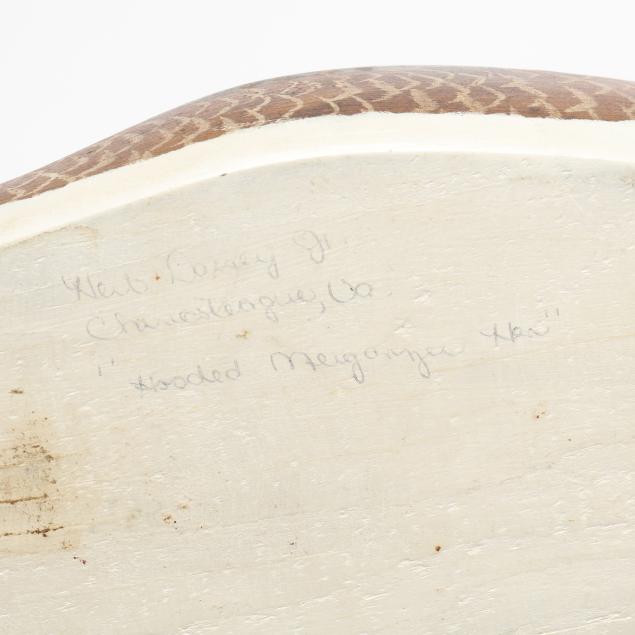 Herb Daisey Jr.
Chincoteague, Va.
"Hooded Merganzer Hen"